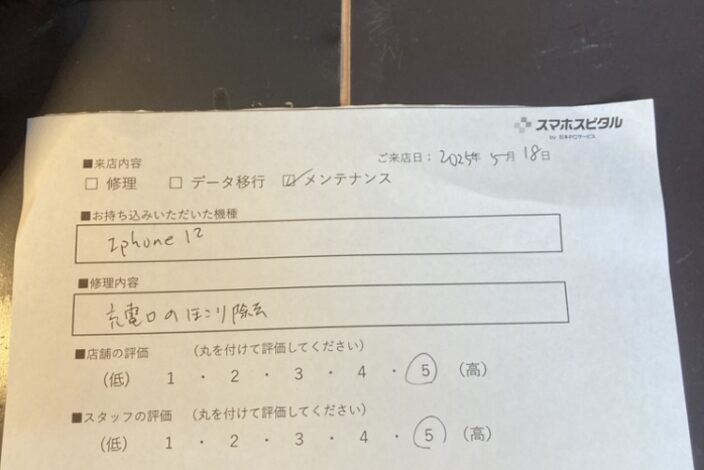 スマホスピタル
by 日本PCサービス
■来店内容
ご来店日：2025年 5月 18日
□ 修理 □ データ移行 ☑ メンテナンス
■お持ち込みいただいた機種
Iphone 12
■修理内容
充電口のほこり除去
■店舗の評価 （丸を付けて評価してください）
（低） 1 ・ 2 ・ 3 ・ 4 ・ 5 （高）
■スタッフの評価 （丸を付けて評価してください）
（低） 1 ・ 2 ・ 3 ・ 4 ・ 5 （高）